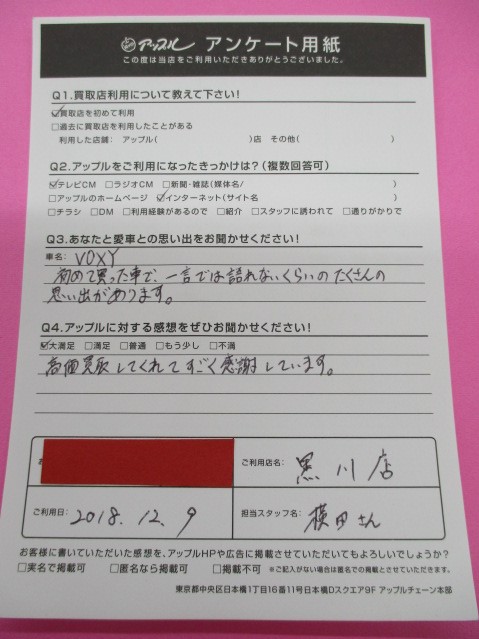 アップル アンケート用紙
この度は当店をご利用いただきありがとうございました。
Q1.買取店利用について教えて下さい！
☑買取店を初めて利用
□過去に買取店を利用したことがある
利用した店舗： アップル( )店 その他( )
Q2.アップルをご利用になったきっかけは？(複数回答可)
☑テレビCM □ラジオCM □新聞・雑誌(媒体名/ )
□アップルのホームページ ☑インターネット(サイト名 )
□チラシ □DM □利用経験があるので □紹介 □スタッフに誘われて □通りがかりで
Q3.あなたと愛車との思い出をお聞かせください！
車名： VOXY
初めて買った車で、一言では語れないくらいのたくさんの
思い出があります。
Q4.アップルに対する感想をぜひお聞かせください！
☑大満足 □満足 □普通 □もう少し □不満
高価買取してくれてすごく感謝しています。
ご利用店名： 黒川店
ご利用日： 2018.12.9
担当スタッフ名： 横田さん
お客様に書いていただいた感想を、アップルHPや広告に掲載させていただいてもよろしいでしょうか？
□実名で掲載可 □匿名なら掲載可 □掲載不可 ※ご記入がない場合は匿名での掲載とさせていただきます。
東京都中央区日本橋1丁目16番11号日本橋Dスクエア9F アップルチェーン本部